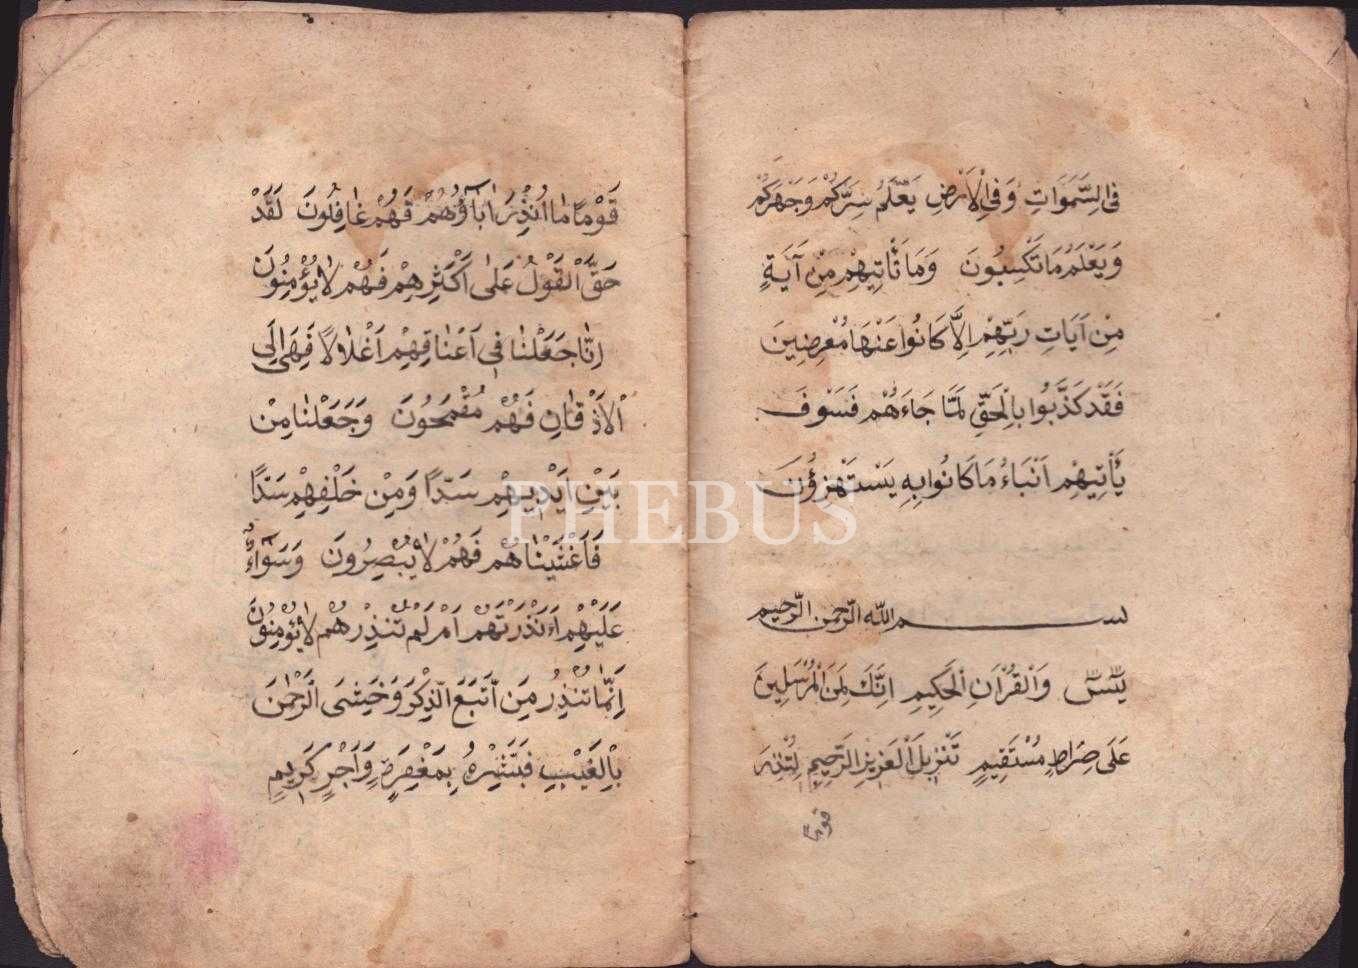 فِى السَّمٰوَاتِ وَفِى الْاَرْضِ يَعْلَمُ سِرَّكُمْ وَجَهْرَكُمْ
وَيَعْلَمُ مَا تَكْسِبُونَ وَمَا تَأْتِيهِمْ مِنْ آيَةٍ
مِنْ اٰيَاتِ رَبِّهِمْ اِلَّا كَانُوا عَنْهَا مُعْرِضِينَ
فَقَدْ كَذَّبُوا بِالْحَقِّ لَمَّا جَاءَهُمْ فَسَوْفَ
يَأْتِيهِمْ اَنْبَاءُ مَا كَانُوا بِهِ يَسْتَهْزِؤُنَ
بسم الله الرّحمن الرّحيم
يٰسٓ وَالْقُرْاٰنِ الْحَكِيمِ اِنَّكَ لَمِنَ الْمُرْسَلِينَ
عَلَى صِرَاطٍ مُسْتَقِيمٍ تَنْزِيلَ الْعَزِيزِ الرَّحِيمِ لِتُنْذِرَ
قومًا
قَوْمًا مَا اُنْذِرَ اٰبَاؤُهُمْ فَهُمْ غَافِلُونَ لَقَدْ
حَقَّ الْقَوْلُ عَلَى اَكْثَرِهِمْ فَهُمْ لَا يُؤْمِنُونَ
اِنَّا جَعَلْنَا فِى اَعْنَاقِهِمْ اَغْلَالًا فَهِىَ اِلَى
الْاَذْقَانِ فَهُمْ مُقْمَحُونَ وَجَعَلْنَا مِنْ
بَيْنِ اَيْدِيهِمْ سَدًّا وَمِنْ خَلْفِهِمْ سَدًّا
فَاَغْشَيْنَاهُمْ فَهُمْ لَا يُبْصِرُونَ وَسَوَاءٌ
عَلَيْهِمْ ءَاَنْذَرْتَهُمْ اَمْ لَمْ تُنْذِرْهُمْ لَا يُؤْمِنُونَ
اِنَّمَا تُنْذِرُ مَنِ اتَّبَعَ الذِّكْرَ وَخَشِىَ الرَّحْمٰنَ
بِالْغَيْبِ فَبَشِّرْهُ بِمَغْفِرَةٍ وَاَجْرٍ كَرِيمٍ
PHEBUS